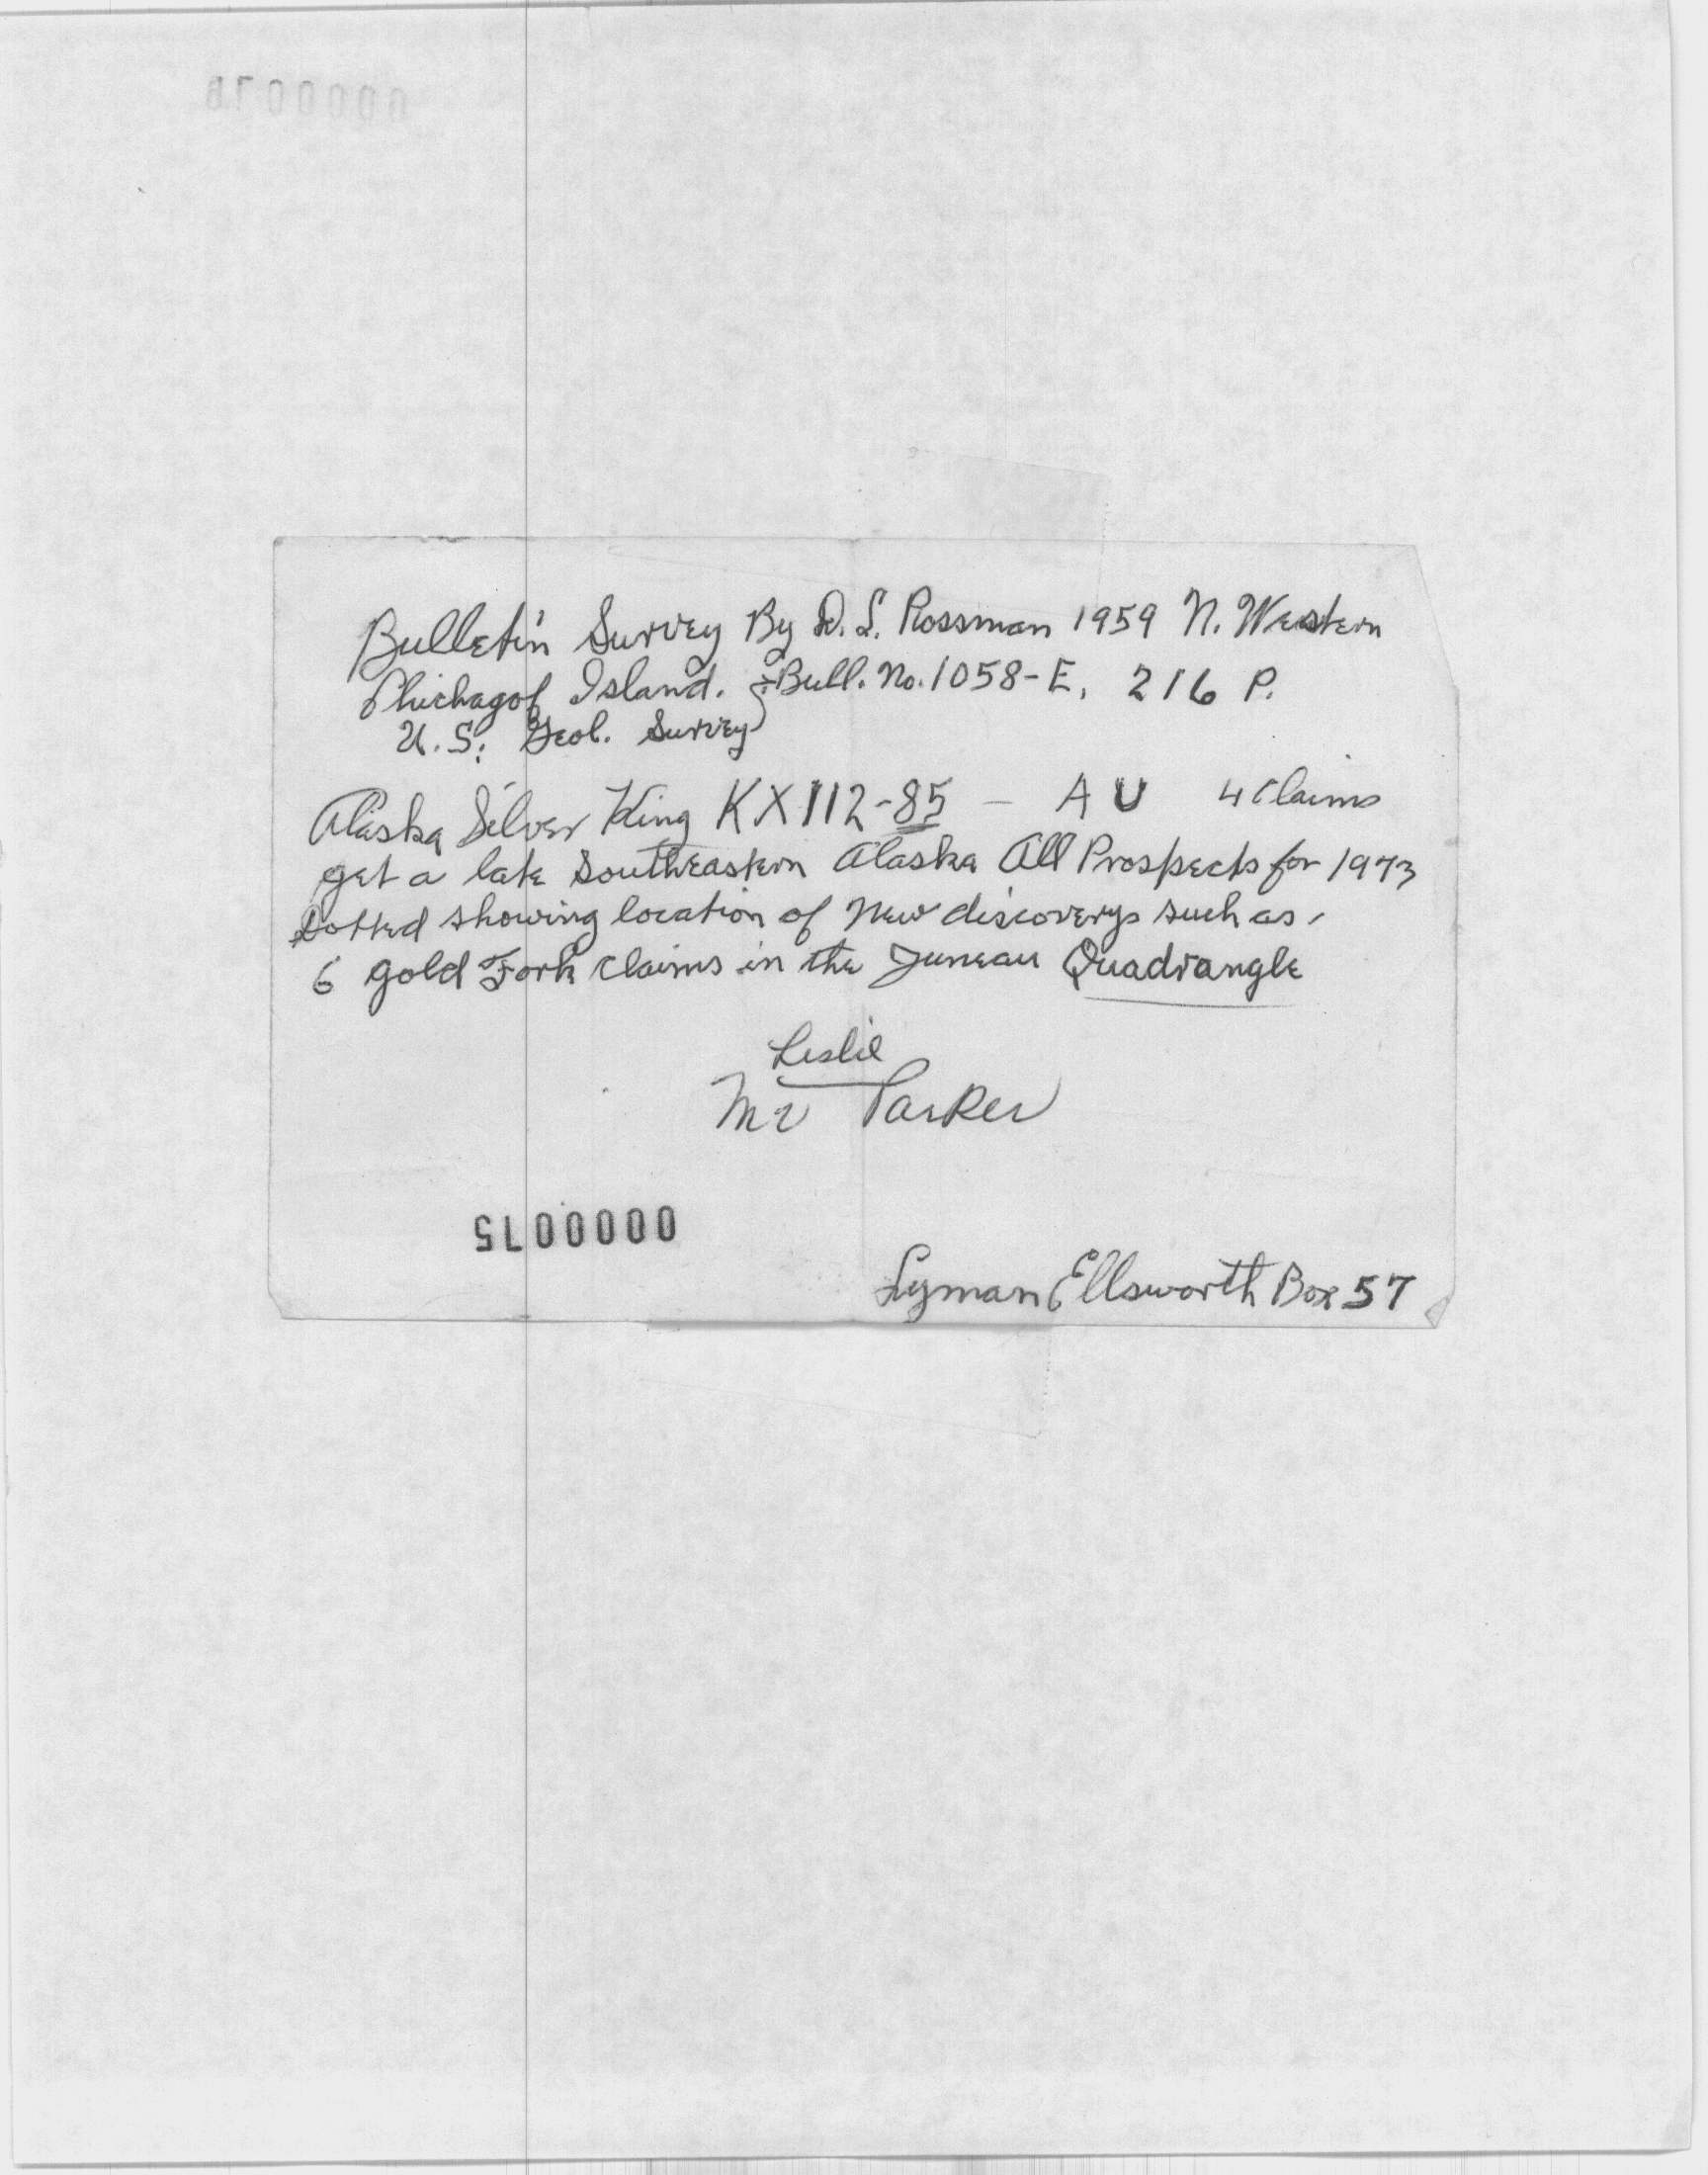 Bulletin Survey By D. L. Rossman 1959 N. Western
Chichagof Island. Bull. No. 1058-E, 216 P.
U.S. Geol. Survey
Alaska Silver King KX112-85 — AU 4 Claims
get a late Southeastern Alaska All Prospects for 1973
Dotted showing location of New discoverys such as,
6 Gold Fork Claims in the Juneau Quadrangle
Leslie
Mr Parker
Lyman Ellsworth Box 57